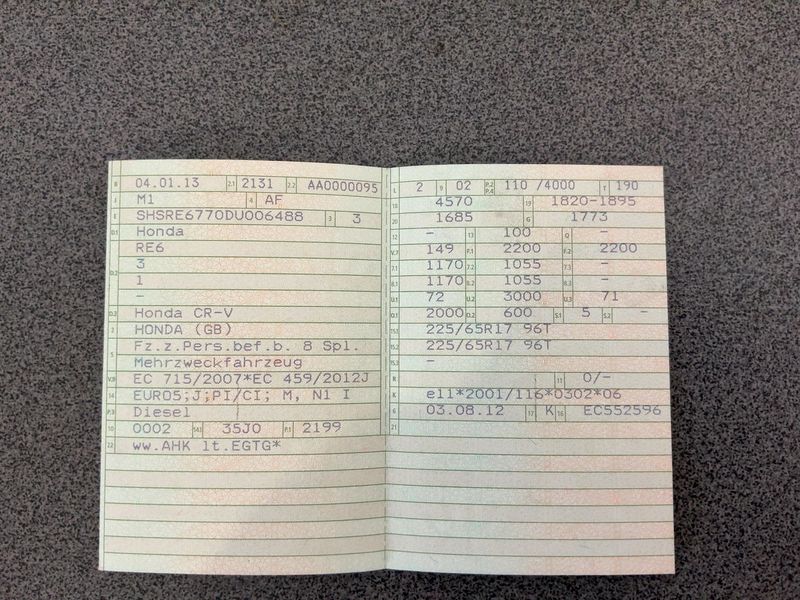 B 04.01.13 2.1 2131 2.2 AA0000095
J M1 4 AF
E SHSRE6770DU006488 3 3
D.1 Honda
RE6
D.2 3
1
–
D.3 Honda CR-V
2 HONDA (GB)
5 Fz.z.Pers.bef.b. 8 Spl.
Mehrzweckfahrzeug
V.9 EC 715/2007*EC 459/2012J
14 EURO5;J;PI/CI; M, N1 I
P.3 Diesel
10 0002 14.1 35J0 P.1 2199
22 ww.AHK lt.EGTG*
L 2 9 02 P.2 P.4 110 /4000 T 190
18 4570 19 1820-1895
20 1685 G 1773
12 – 13 100 Q –
V.7 149 F.1 2200 F.2 2200
7.1 1170 7.2 1055 7.3 –
8.1 1170 8.2 1055 8.3 –
U.1 72 U.2 3000 U.3 71
O.1 2000 O.2 600 S.1 5 S.2 –
15.1 225/65R17 96T
15.2 225/65R17 96T
15.3 –
R 11 0/–
K e11*2001/116*0302*06
6 03.08.12 17 K 16 EC552596
21